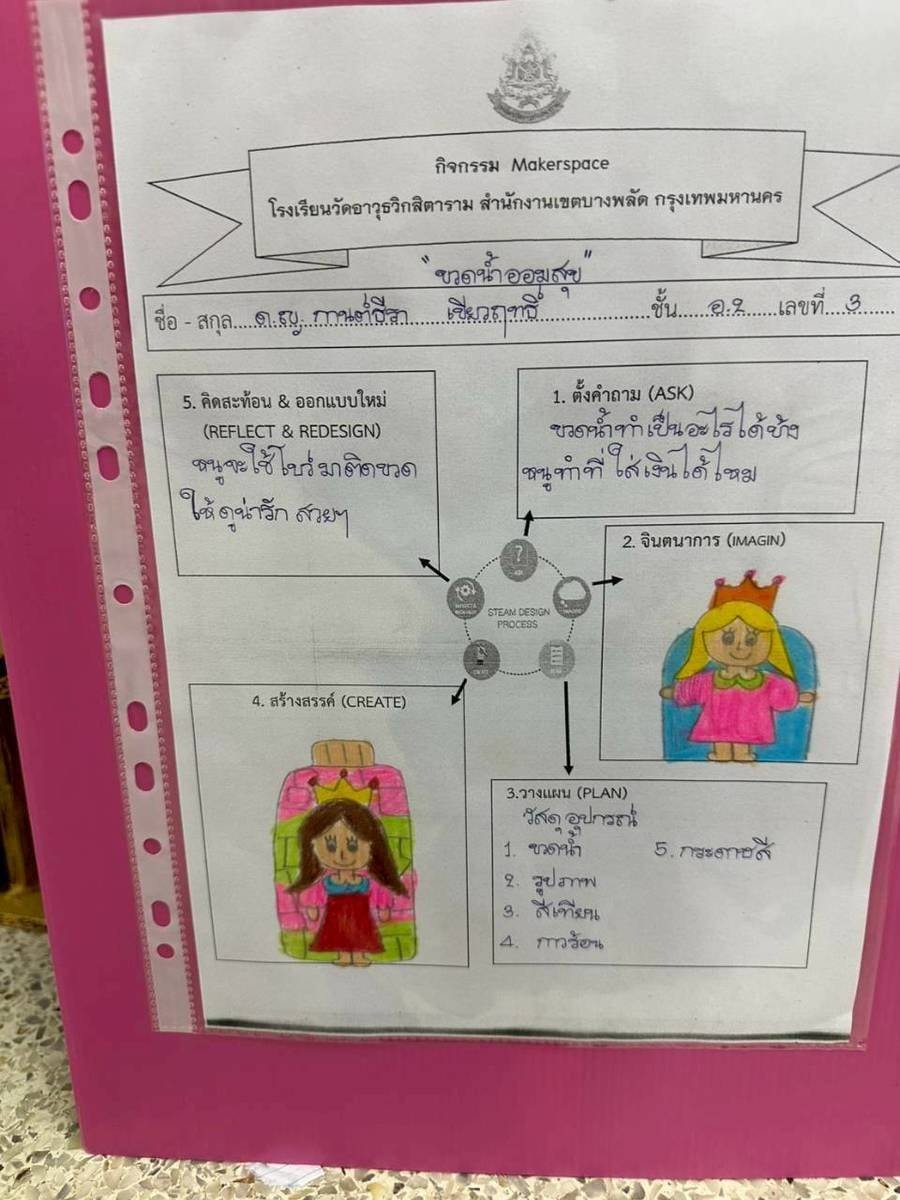 กิจกรรม Makerspace
โรงเรียนวัดอาวุธวิกสิตาราม สำนักงานเขตบางพลัด กรุงเทพมหานคร
"ขวดน้ำออมสุข"
ชื่อ - สกุล ด.ญ. กานต์ธีรา เขียวฤทธิ์ ชั้น อ.2 เลขที่ 3
1. ตั้งคำถาม (ASK)
ขวดน้ำทำเป็นอะไรได้บ้าง
หนูทำที่ใส่เงินได้ไหม
2. จินตนาการ (IMAGIN)
3.วางแผน (PLAN)
วัสดุอุปกรณ์
1. ขวดน้ำ 5. กระดาษสี
2. รูปภาพ
3. สีเทียน
4. กาวร้อน
4. สร้างสรรค์ (CREATE)
5. คิดสะท้อน & ออกแบบใหม่
(REFLECT & REDESIGN)
หนูจะใช้โบว์มาติดขวด
ให้ดูน่ารัก สวยๆ
STEAM DESIGN
PROCESS
?
ASK
CREATE